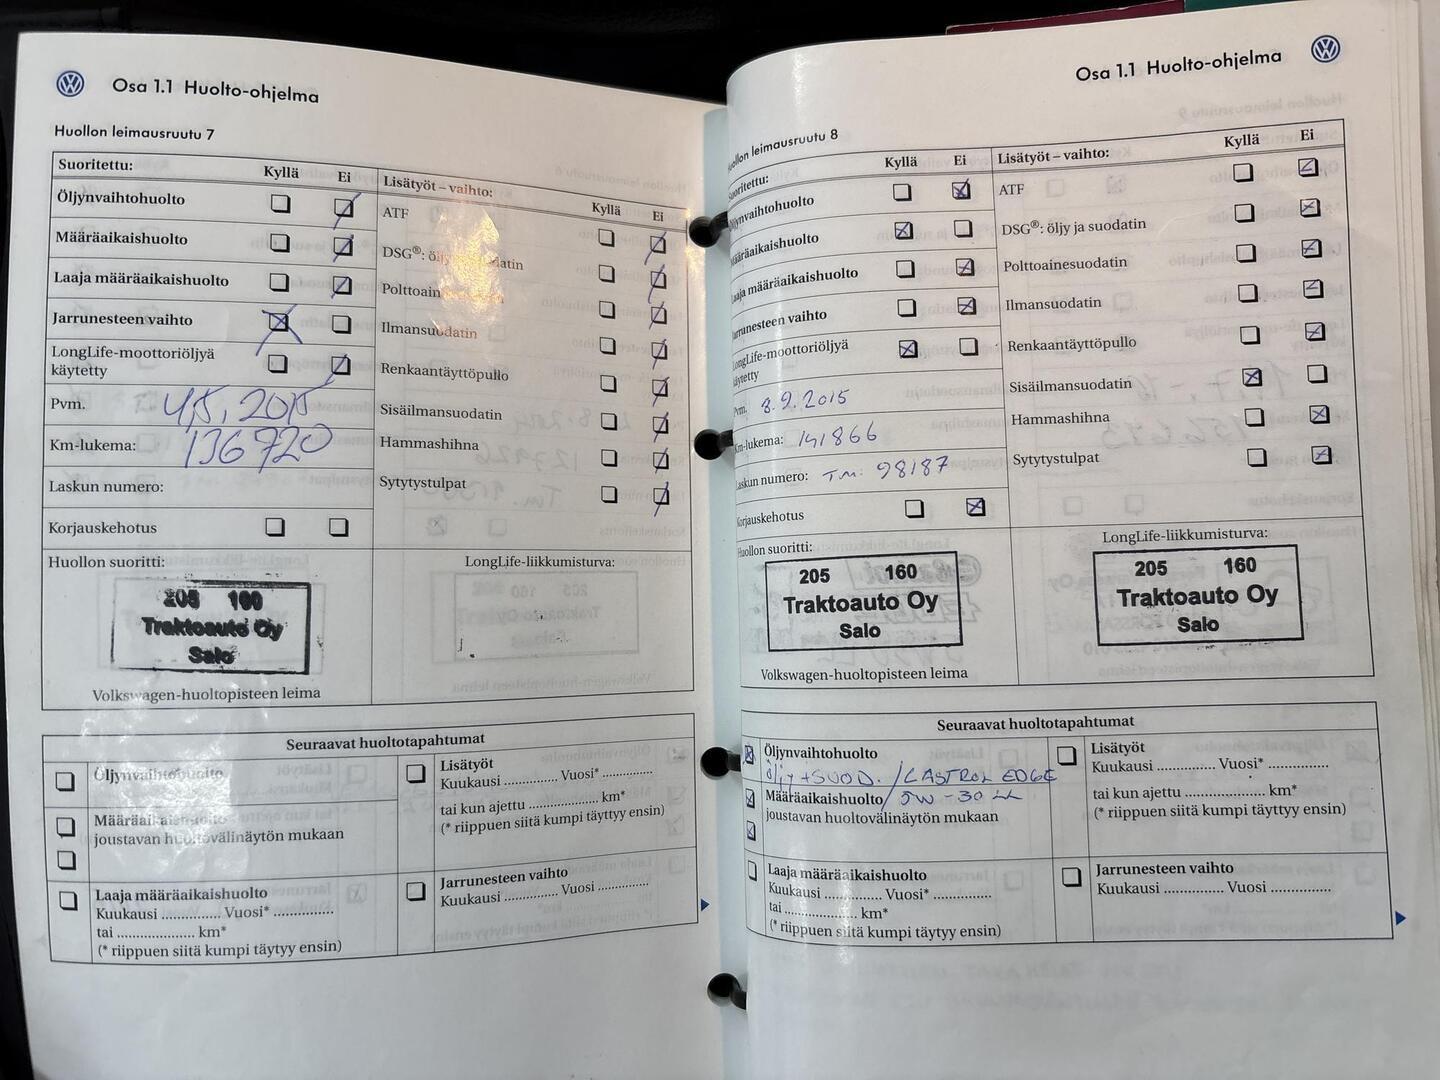 Osa 1.1 Huolto-ohjelma
Huollon leimausruutu 7
Suoritettu: Kyllä Ei
Öljynvaihtohuolto
Määräaikaishuolto
Laaja määräaikaishuolto
Jarrunesteen vaihto
LongLife-moottoriöljyä
käytetty
Pvm. 4.5.2015
Km-lukema: 136720
Laskun numero:
Korjauskehotus
Lisätyöt – vaihto: Kyllä Ei
ATF
DSG®: öljy
Polttoain
Ilmansuodatin
Renkaantäyttöpullo
Sisäilmansuodatin
Hammashihna
Sytytystulpat
Huollon suoritti:
205 160
Traktoauto Oy
Salo
Volkswagen-huoltopisteen leima
LongLife-liikkumisturva:
Seuraavat huoltotapahtumat
Öljynvaihtohuolto
Määräaikaishuolto
joustavan huoltovälinäytön mukaan
Laaja määräaikaishuolto
Kuukausi ............. Vuosi* ..............
tai ..................... km*
(* riippuen siitä kumpi täytyy ensin)
Lisätyöt
Kuukausi ............. Vuosi* .............
tai kun ajettu .................. km*
(* riippuen siitä kumpi täyttyy ensin)
Jarrunesteen vaihto
Kuukausi .............. Vuosi ..............
Osa 1.1 Huolto-ohjelma
Huollon leimausruutu 8
Suoritettu: Kyllä Ei
Öljynvaihtohuolto
Määräaikaishuolto
Laaja määräaikaishuolto
Jarrunesteen vaihto
LongLife-moottoriöljyä
käytetty
Pvm. 8.9.2015
Km-lukema: 141866
Laskun numero: Tm: 98187
Korjauskehotus
Lisätyöt – vaihto: Kyllä Ei
ATF
DSG®: öljy ja suodatin
Polttoainesuodatin
Ilmansuodatin
Renkaantäyttöpullo
Sisäilmansuodatin
Hammashihna
Sytytystulpat
Huollon suoritti:
205 160
Traktoauto Oy
Salo
Volkswagen-huoltopisteen leima
LongLife-liikkumisturva:
205 160
Traktoauto Oy
Salo
Seuraavat huoltotapahtumat
Öljynvaihtohuolto
Öljy + SUOD. / CASTROL EDGE
Määräaikaishuolto / 5W-30 LL
joustavan huoltovälinäytön mukaan
Laaja määräaikaishuolto
Kuukausi .............. Vuosi* ..............
tai .................... km*
(* riippuen siitä kumpi täytyy ensin)
Lisätyöt
Kuukausi .............. Vuosi* ..............
tai kun ajettu ..................... km*
(* riippuen siitä kumpi täyttyy ensin)
Jarrunesteen vaihto
Kuukausi ............... Vuosi ...............